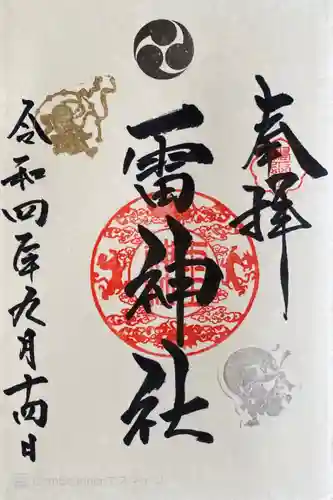 奉拝
雷神社
令和四年九月十四日